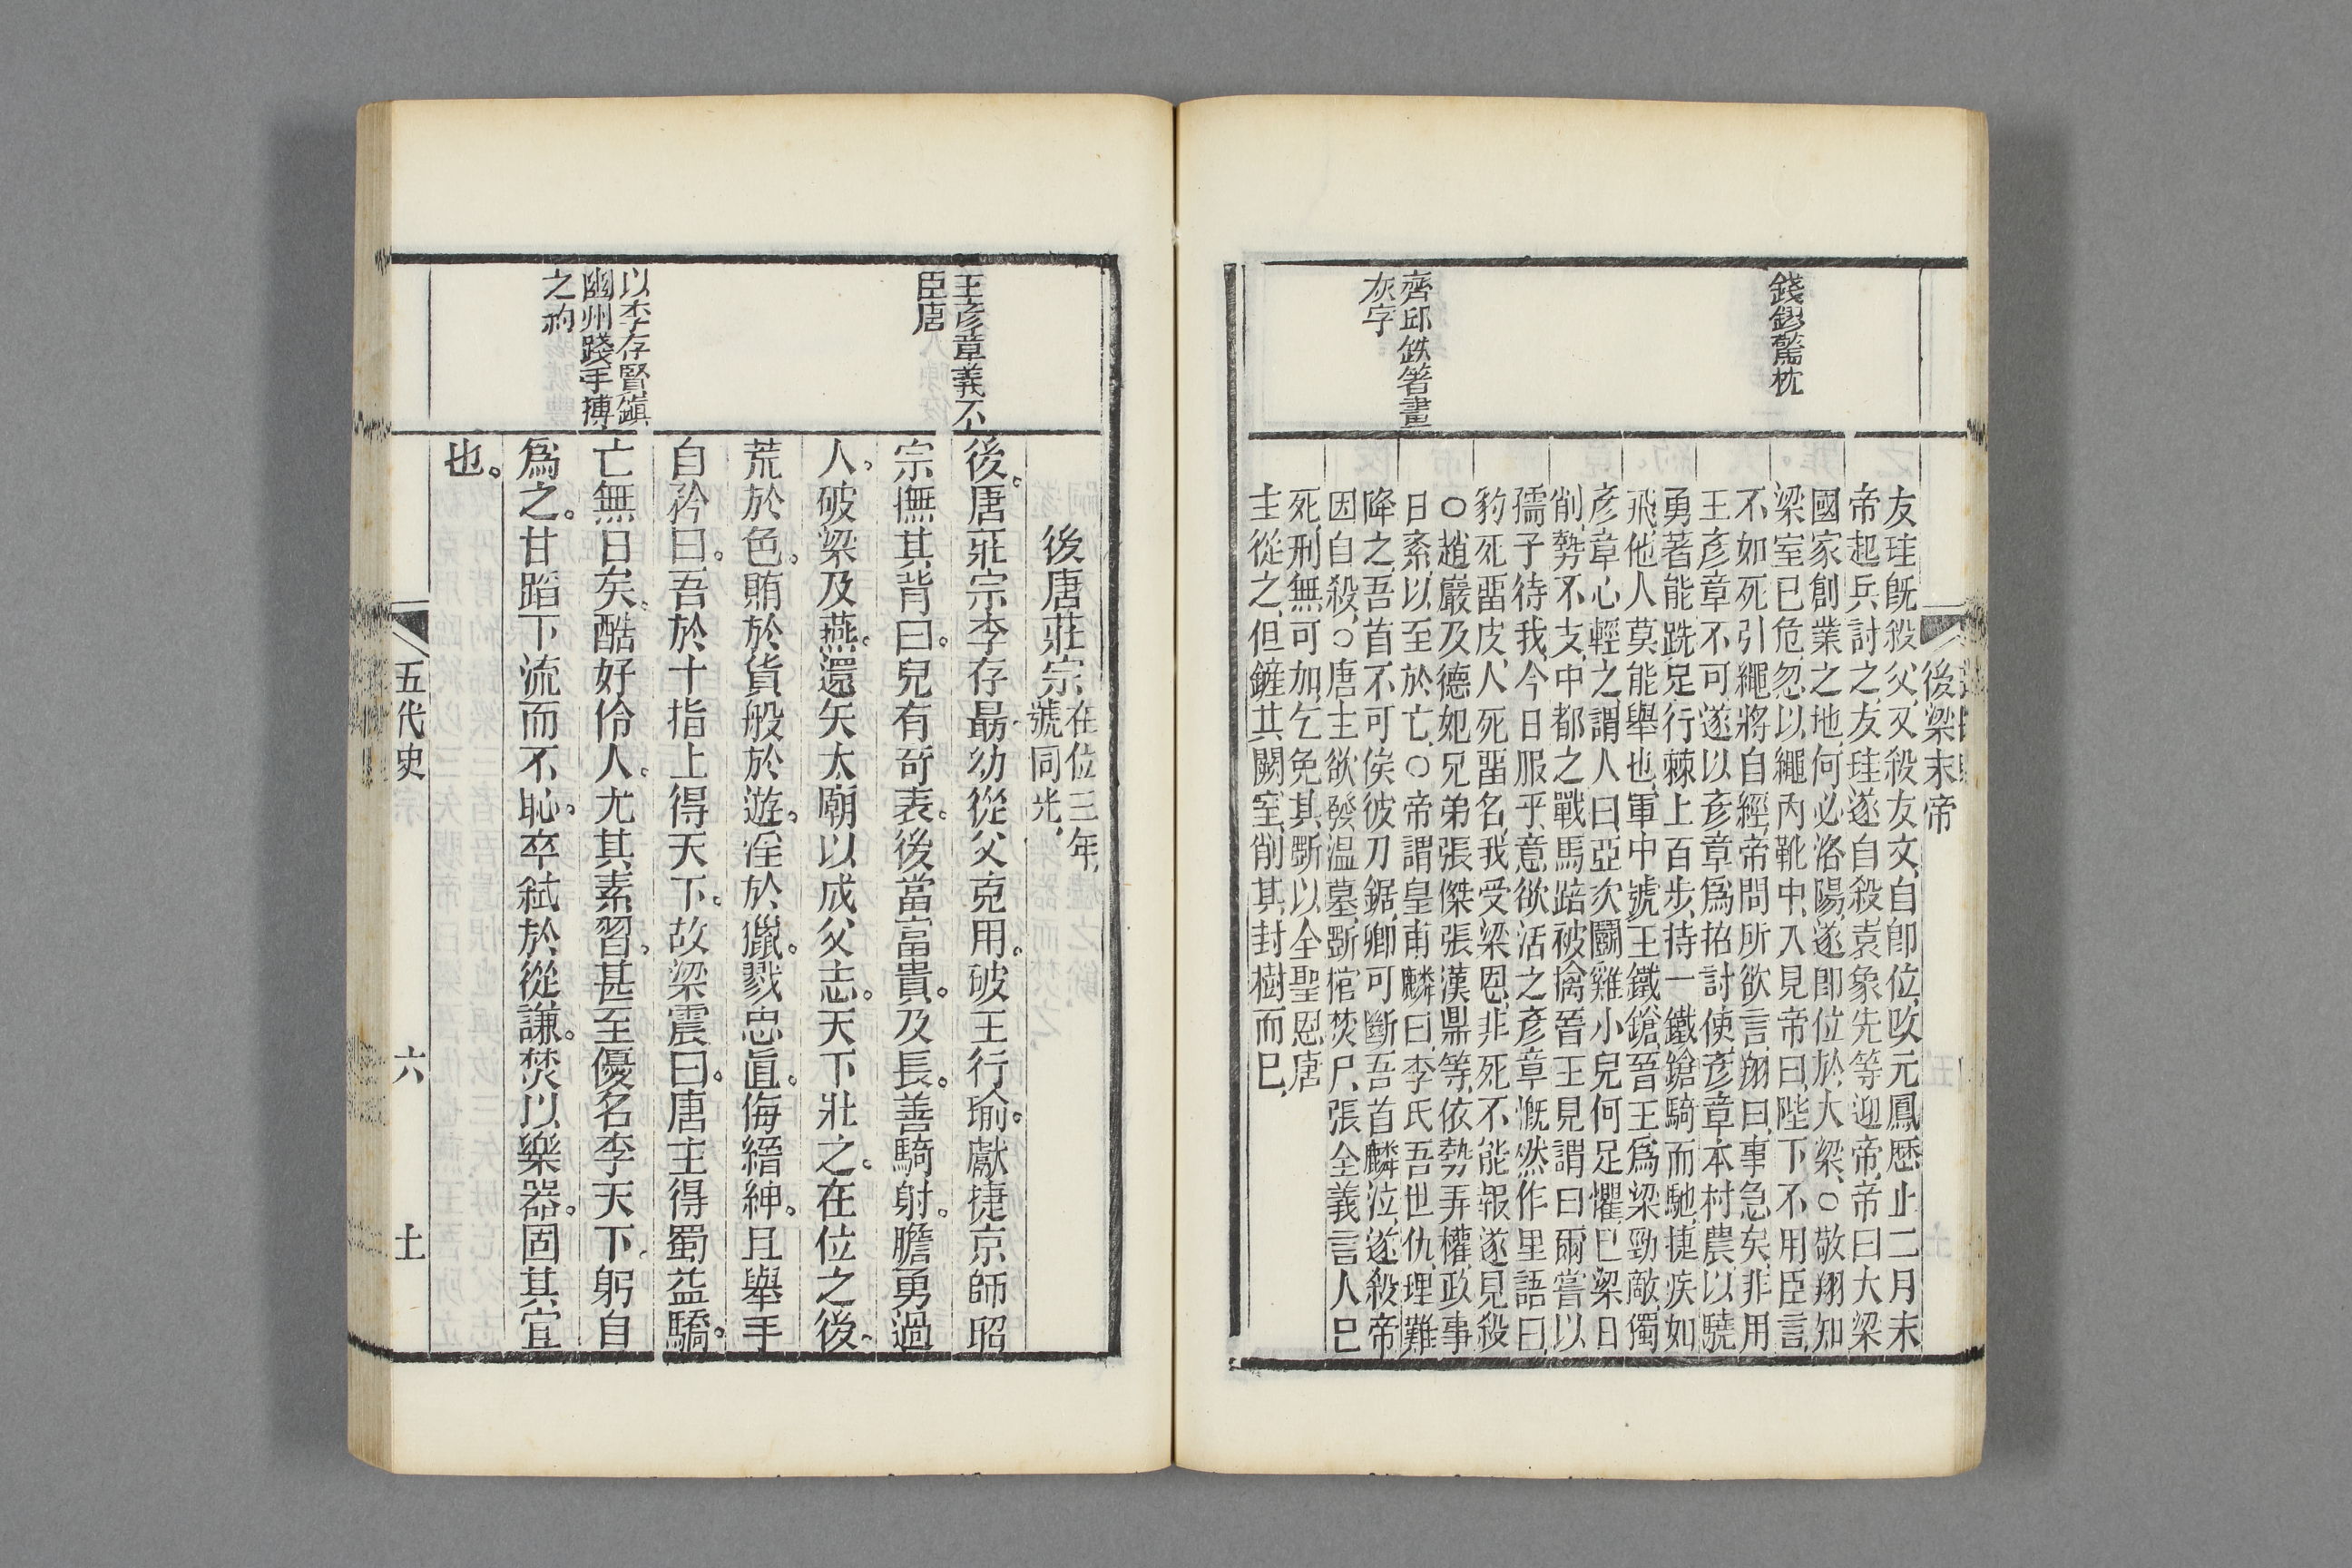 後梁末帝
錢鏐驚枕
齊邱鉄箸畫
灰字
友珪旣殺父又殺友文自卽位改元鳳歷止二月末
帝起兵討之友珪遂自殺袁象先等迎帝帝曰大梁
國家創業之地何必洛陽遂卽位於大梁○敬翔知
梁室已危忽以繩內靴中入見帝曰陛下不用臣言
不如死引繩將自經帝問所欲言翔曰事急矣非用
王彥章不可遂以彥章爲招討使彥章本村農以驍
勇著能跣足行棘上百步持一鐵鎗騎而馳捷疾如
飛他人莫能舉也軍中號王鐵鎗晉王爲梁勁敵獨
彥章心輕之謂人曰亞次鬭雞小兒何足懼已梁日
削勢不支中都之戰馬踣被擒晉王見謂曰爾嘗以
孺子待我今日服乎意欲活之彥章慨然作里語曰
豹死畱皮人死畱名我受梁恩非死不能報遂見殺
○趙巖及德妃兄弟張傑張漢鼎等依勢弄權政事
日紊以至於亡○帝謂皇甫麟曰李氏吾世仇理難
降之吾首不可俟彼刀鋸卿可斷吾首麟泣遂殺帝
因自殺○唐主欲發温墓斲棺焚尸張全義言人已
死刑無可加乞免其斲以全聖恩唐
主從之但鏟其闕室削其封樹而已
王彥章義不
臣唐
以李存賢鎭
幽州踐手搏
之約
後唐莊宗在位三年
號同光
後唐莊宗李存勗幼從父克用破王行瑜獻捷京師昭
宗撫其背曰兒有奇表後當富貴及長善騎射膽勇過
人破梁及燕還矢太廟以成父志天下壯之在位之後
荒於色賄於貨般於遊淫於獵戮忠直侮縉紳且舉手
自矜曰吾於十指上得天下故梁震曰唐主得蜀益驕
亡無日矣酷好伶人尤其素習甚至優名李天下躬自
爲之甘蹈下流而不恥卒弑於從謙焚以樂器固其宜
也
五代史
六
土